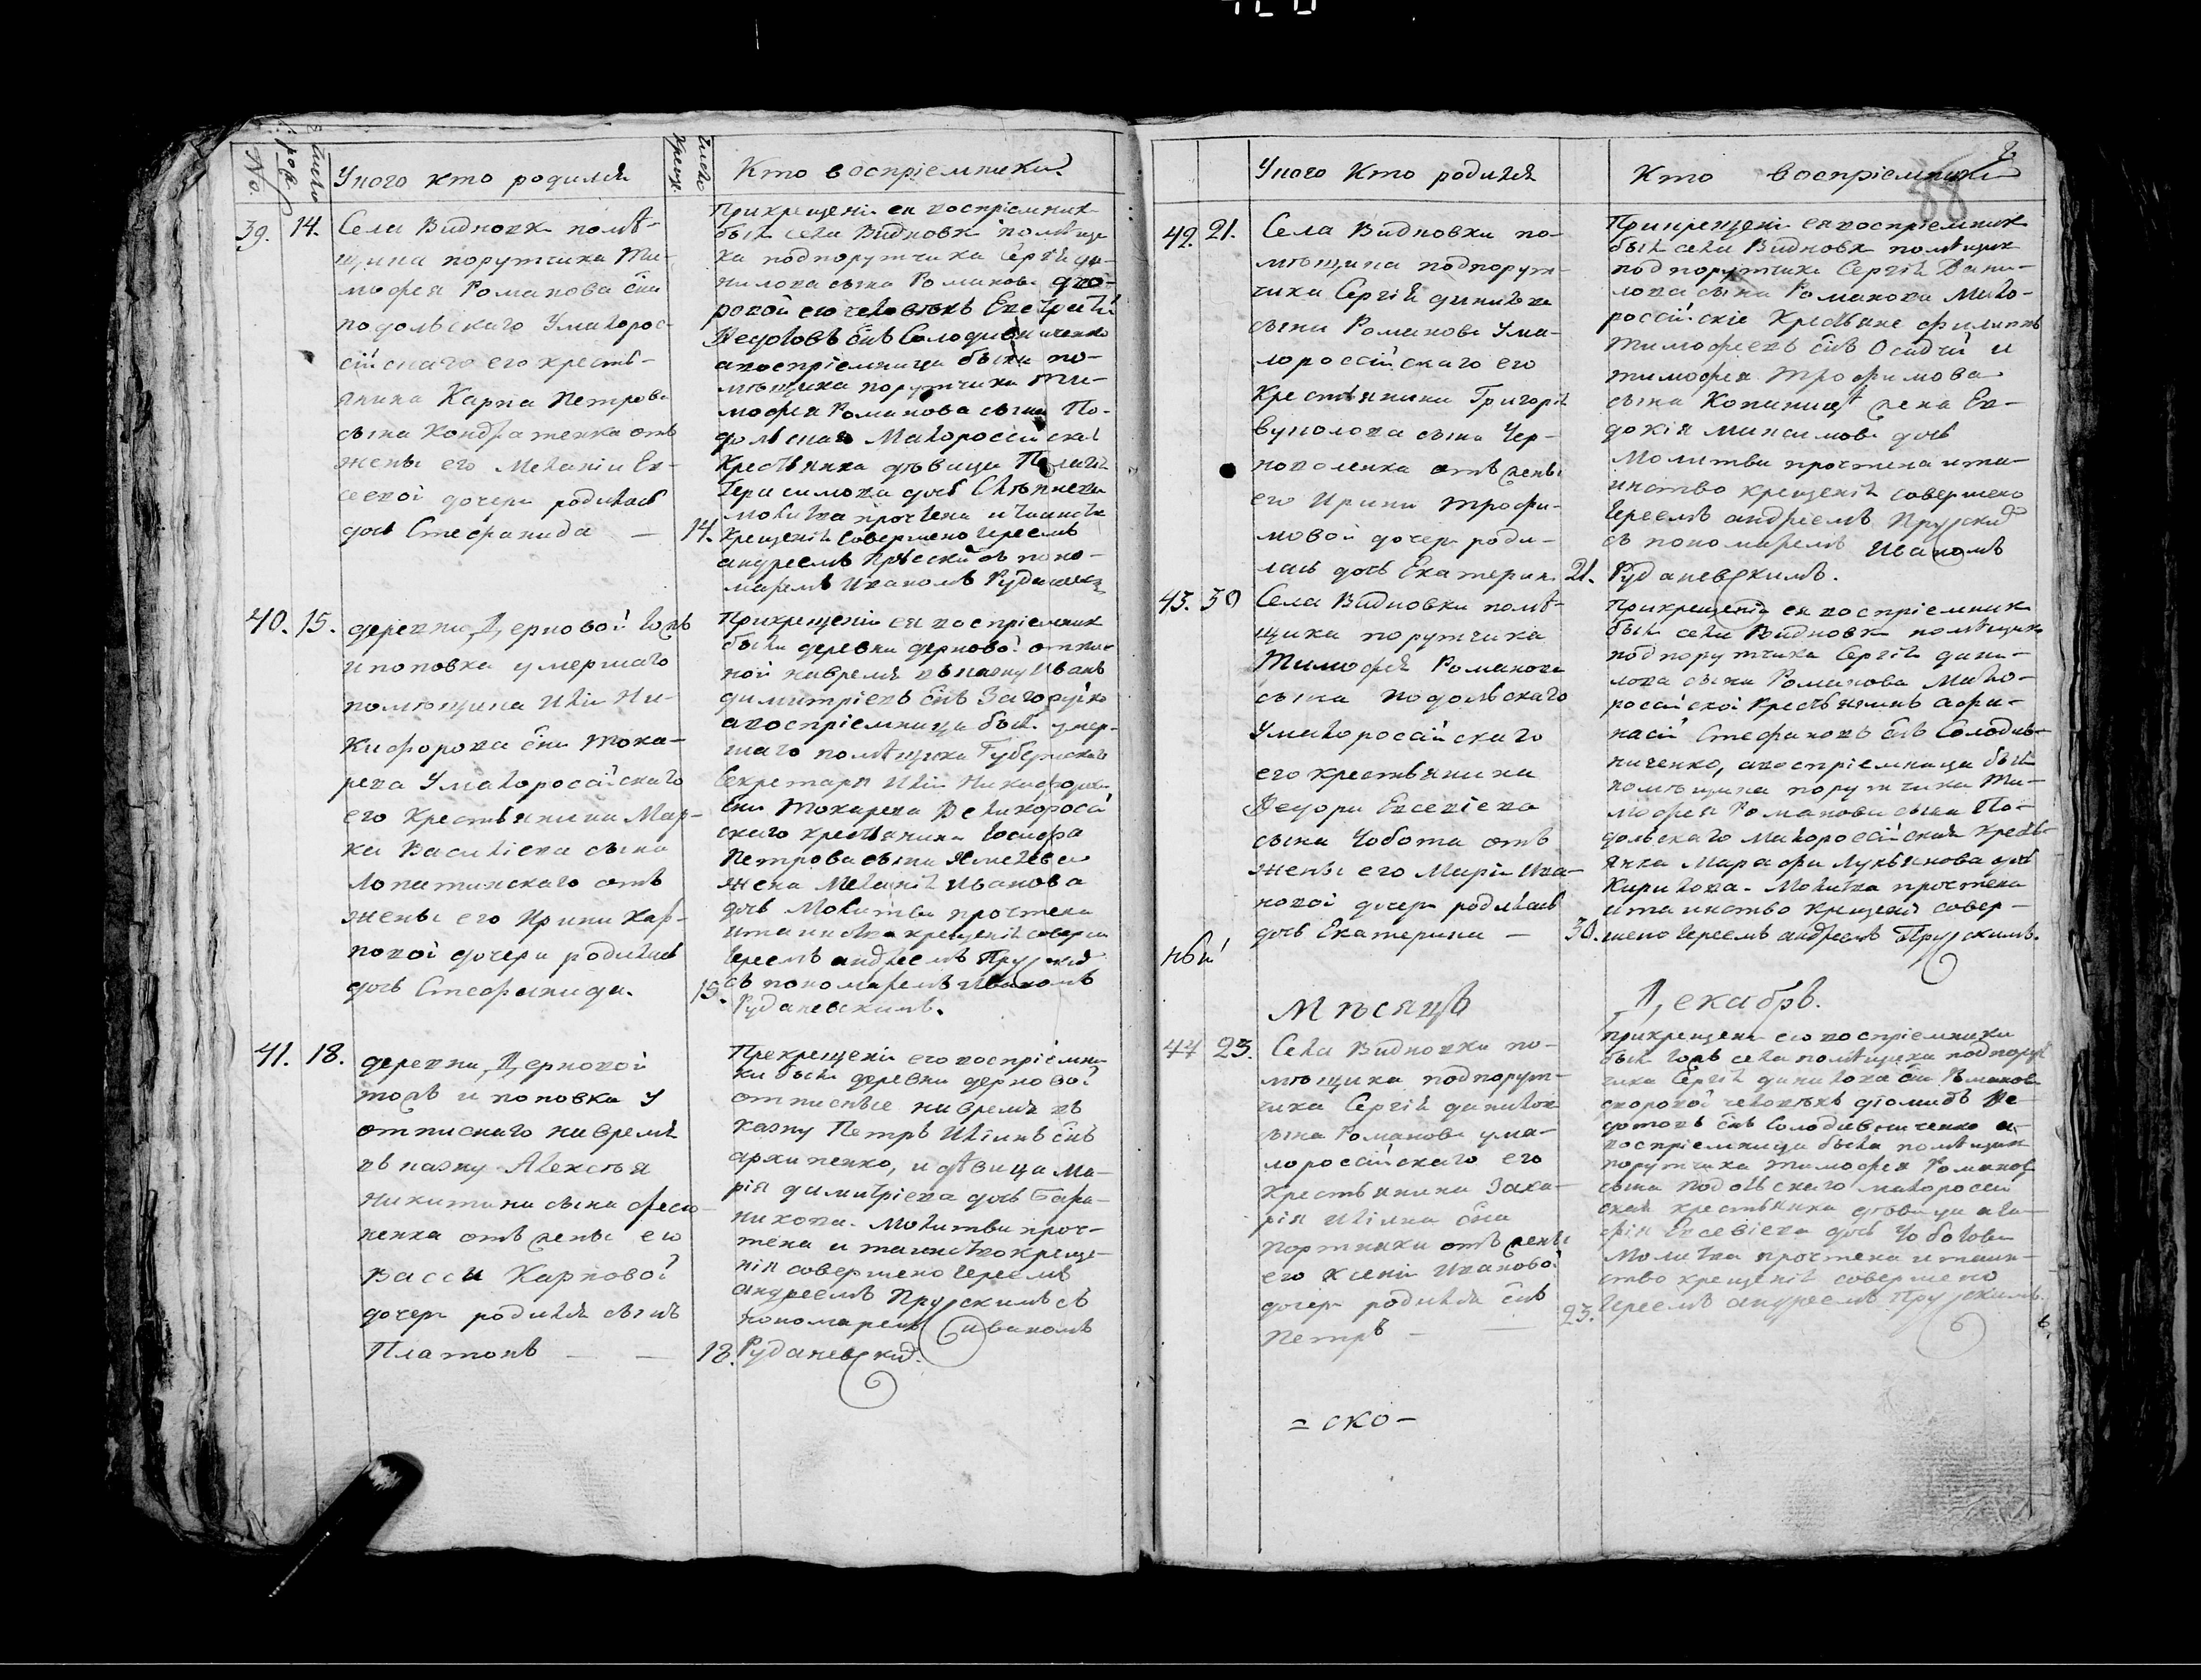 No.
число рож.
Уного кто родился
число крещ.
Кто воспріемники
39. 14.
Села Видновки помѣ-
щика порутчика Ти-
мофея Романова сна
подольскаго Умалорос-
сійскаго его кресть-
янина Карпа Петрова
сына Кондратенка отъ
жены его Меланіи Ев-
сеевой дочери родилась
дочь Стефанида —
14.
При крещеніи ея воспріемник
былъ села Видновк помѣщи
ка подпорутчика Сергѣя да-
нилова сына Романова дво-
ровой его человѣкъ
Ѳедотовъ снъ Солодовниченко
авоспріемница была по-
мѣщика порутчика Ти-
мофея Романова сына По-
дольскаго Малороссійская
Крестьянка дѣвица Пелагія
Герасимова дочь
молитва прочтена и таинств
крещенія совершено Іереемъ
андреемъ съ поно-
маремъ Иваномъ
40. 15.
деревни Дерновой тожъ
и поповка умершаго
помѣщика Иліи Ни-
кифорова сна Тока-
рева Умалоросійскаго
его Крестьянина Мар-
ка Василіева сына
Лопатинскаго отъ
жены его Ирины Кар-
повой дочери родилась
дочь Стефанида.
15.
При крещеніи ея воспріемник
были деревни дерновой отпис-
ной навремя въ казну Иванъ
димитріевъ снъ Загоруйко
авоспріемница был умер-
шаго помѣщика Губернскаго
Секретаря Иліи Никифорова
сна Токарева Великоросій
скаго крестьянина Іосифа
Петрова сына
жена Меланія Иванова
дочь Молитва прочтена
и таинства крещенія соверше
Іереемъ андреемъ Прускимъ
съ пономаремъ Иваномъ
Руданевскимъ.
41. 18.
деревни Дерновой
тожъ и поповка У
отписнаго навремя
въ казну Алексѣя
никитина сына
ненка отъ жены его
Вассы Карповой
дочери родился сынъ
Платонъ — —
18.
При крещеніи его воспріемни
ки были деревни дерновой
отписные навремя въ
казну Петръ Иліинъ снъ
архипенко, и дѣвица Ма-
рія димитріева дочь Бара-
никова. Молитва проч-
тена и таинство креще-
нія совершено Іереемъ
андреемъ Прускимъ съ
пономаремъ Иваномъ
Руданевским.
Уного Кто родился
Кто воспріемники
88
42. 21.
Села Видновки по-
мѣщика подпорут-
чика Сергія данилова
сына Романова Ума-
лороссійскаго его
Крестьянина Григорія
Вуколова сына Чер-
ноколенка отъ жены
его Ирины Трофи-
мовой дочери роди-
лась дочь Екатерина
21.
При крещеніи ея воспріемник
былъ села Видновк помѣщик
подпорутчика Сергія Дани-
лова сына Романова Мало-
россійскіе Крестьяне филиппъ
Тимофеевъ снъ Осадчій и
тимофея Трофимова
сына жена Ев-
докія Максимова дочь
Молитва прочтена и таи-
инство крещенія совершено
Іереемъ андреемъ Прускимъ
съ пономаремъ Иваномъ
Руданевскимъ.
43. 30
Села Видновки помѣ-
щика порутчика
Тимофея Романова
сына подольскаго
Умалоросійскаго
его крестьянина
Ѳедора Евсевіева
сына Чобота отъ
жены его Маріи Ива-
новой дочери родилась
дочь Екатерина —
30.
При крещеніи ея воспріемник
былъ села Видновк помѣщика
подпорутчика Сергія дани-
лова сына Романова Мало-
російской Крестьянинъ афа-
насій Стефановъ снъ Солодов-
ниченко, авоспріемница был
помѣщика порутчика Ти-
мофея Романова сына По-
дольскаго малороссійская кресть-
янка Марафа Лукьянова дочь
Кирилова. Молитва прочтена
и таинство крещенія совер-
шено Іереемъ андреемъ Прускимъ.
Мѣсяцъ Декабрь.
44 23.
Села Видновки по-
мѣщика подпорут-
чика Сергія данилов
сына Романова ума-
лороссійскаго его
крестьянина Заха-
рія Иліина сна
Портнаки отъ жены
его Ксеніи Ивановой
дочери родился снъ
Петръ —
23.
При крещеніи его воспріемники
был тожъ села помѣщика подпорут
чика Сергія данилова сна Романов
дворовой человѣкъ діомидъ Ѳе-
дотовъ снъ Солодовниченко а
воспріемница была помѣщик
порутчика тимофея Романов
сына Подольскаго малоросси
ская крестьянка дѣвица ага-
фія Евсевіева дочь Чоботова
Молитва прочтена и таин-
ство крещенія совершено
Іереемъ андреемъ Прускимъ.
= ско —